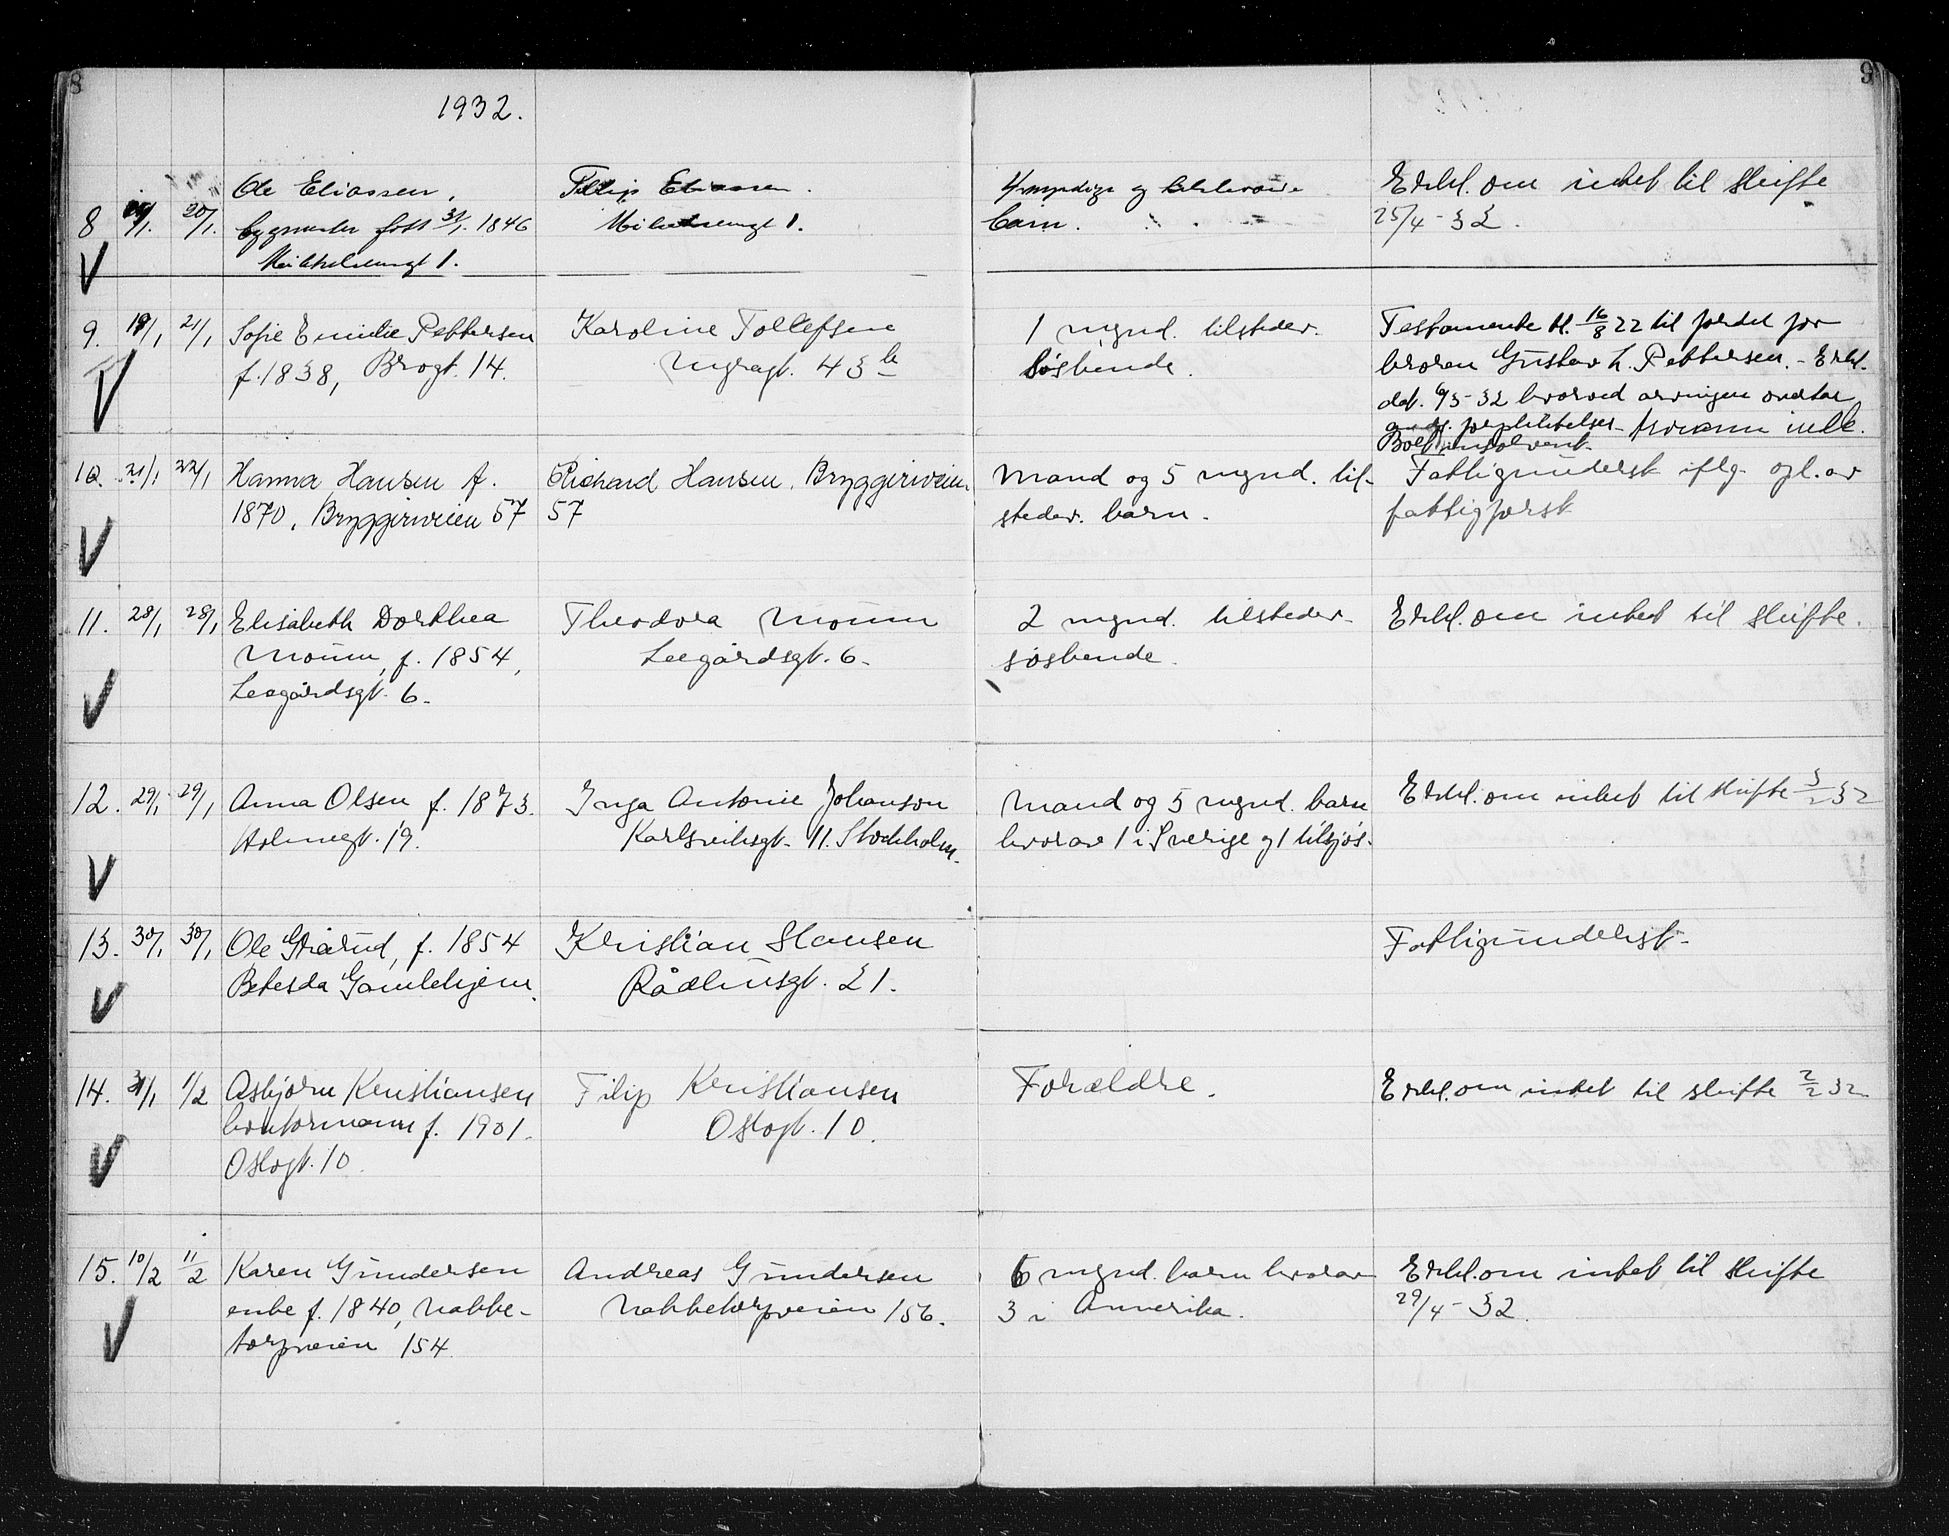 8
9
1932.
8 20/1. Ole Eliassen,
bygmester født 31/1. 1846
1.
Filip Eliassen.
1.
4 myndige og
barn.
Erkl. om intet til skifte
25/4 - 32.
9. 19/1 21/1 Sofie Emilie Pettersen
f. 1838, Brogt. 14.
Karoline Tollefsen
Nygagt. 43 b
1 mynd. tilstedev.
søskende.
Testamente bl. 16/8 22 til fordel for
broren Gustav L. Pettersen. - Erkl.
dat. 6/5 - 32 hvorved arvingen overtar
forpliktelser
Boet insolvent.
10. 21/1 22/1 Hanna Hansen f.
1870, Bryggeriveien 57
Richard Hansen, Bryggeriveien
57
Mand og 5 mynd. til-
stedev. barn.
Fattigunderst. iflg. opl. av
fattigforst.
11. 28/1 28/1 Elisabeth Dorthea
Moum, f. 1854,
Leegårdsgt. 6.
Theodora Moum
Leegårdsgt. 6.
2 mynd. tilstedev.
søskende.
Erkl. om intet til skifte.
12. 29/1 29/1 Anna Olsen f. 1873.
Holmegt. 19.
Inga Antonie Johanson
Karlsviksgt. 11. Stockholm.
Mand og 5 mynd. barn
hvorav 1 i Sverige og 1 tilsjøs.
Erkl. om intet til skifte 3/2 32
13. 30/1 30/1 Ole, f. 1854
Betesda Gamlehjem.
Kristian Hansen
Rådhusgt. 21.
Fattigunderst.
14. 31/1 1/2 Asbjørn Kristiansen
kontormann f. 1901.
Oslogt. 10.
Filip Kristiansen
Oslogt. 10.
Forældre.
Erkl. om intet til skifte 2/2 32
15. 10/2 11/2 Karen Gundersen
enke f. 1840, Nabbe-
torpveien 154
Andreas Gundersen
Nabbetorpveien 156.
6 mynd. barn hvorav
3 i Amerika.
Erkl. om intet til skifte
29/4 - 32.